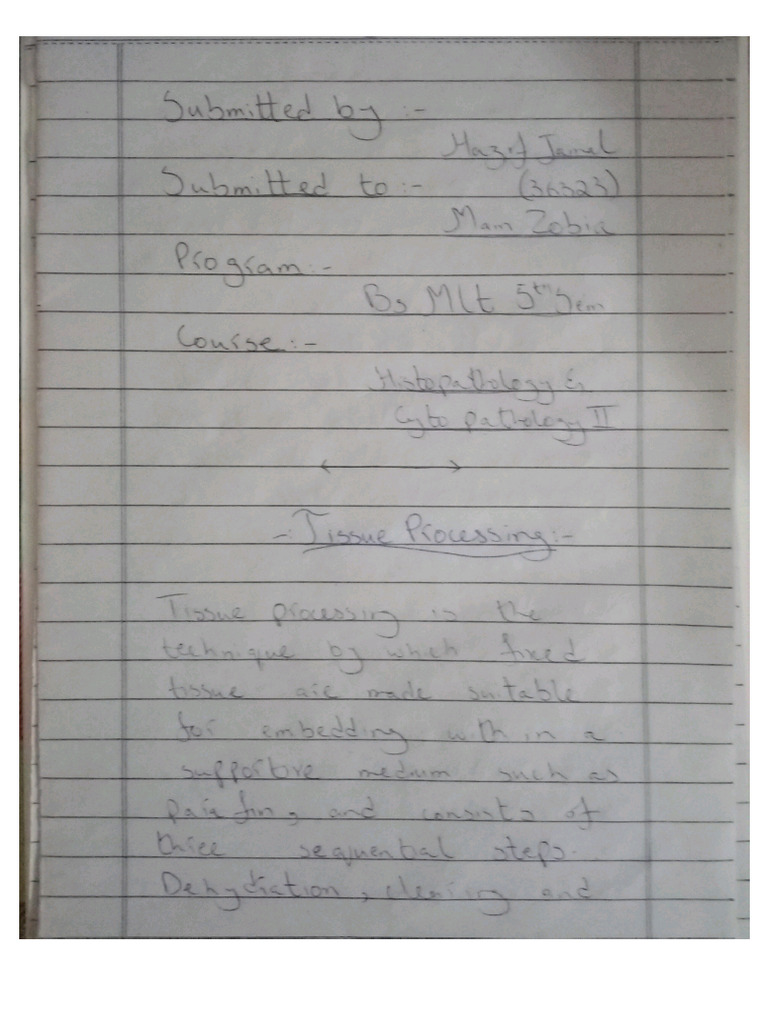 Submitted by :-
Jamal
Submitted to :- (36323)
Mam Zobia
Program :-
Bs Mlt 5th Sem
Course :-
Histopathology &
Cyto pathology II
-: Tissue Processing :-
Tissue processing is the
technique by which fixed
tissue are made suitable
for embedding with in a
supportive medium such as
paraffin, and consists of
three sequential steps.
Dehydration, clearing and